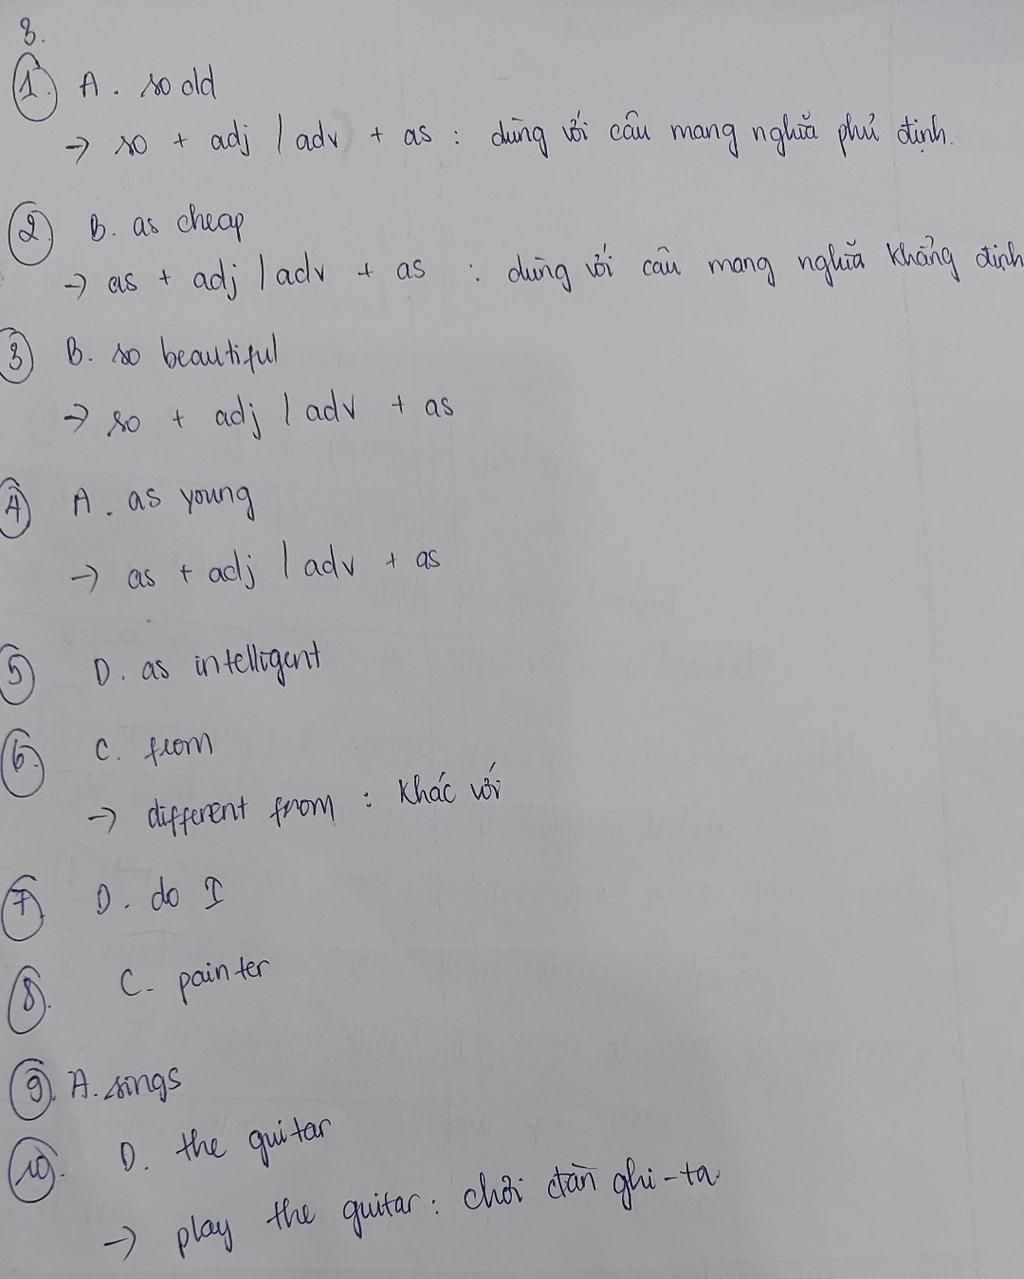 8.
1. A. so old
→ so + adj / adv + as : dùng với câu mang nghĩa phủ định.
2. B. as cheap
→ as + adj / adv + as : dùng với câu mang nghĩa khẳng định
3 B. so beautiful
→ so + adj / adv + as
4 A. as young
→ as + adj / adv + as
5 D. as intelligent
6. C. from
→ different from : khác với
7. D. do I
8. C. painter
9. A. sings
10. D. the guitar
→ play the guitar : chơi đàn ghi-ta